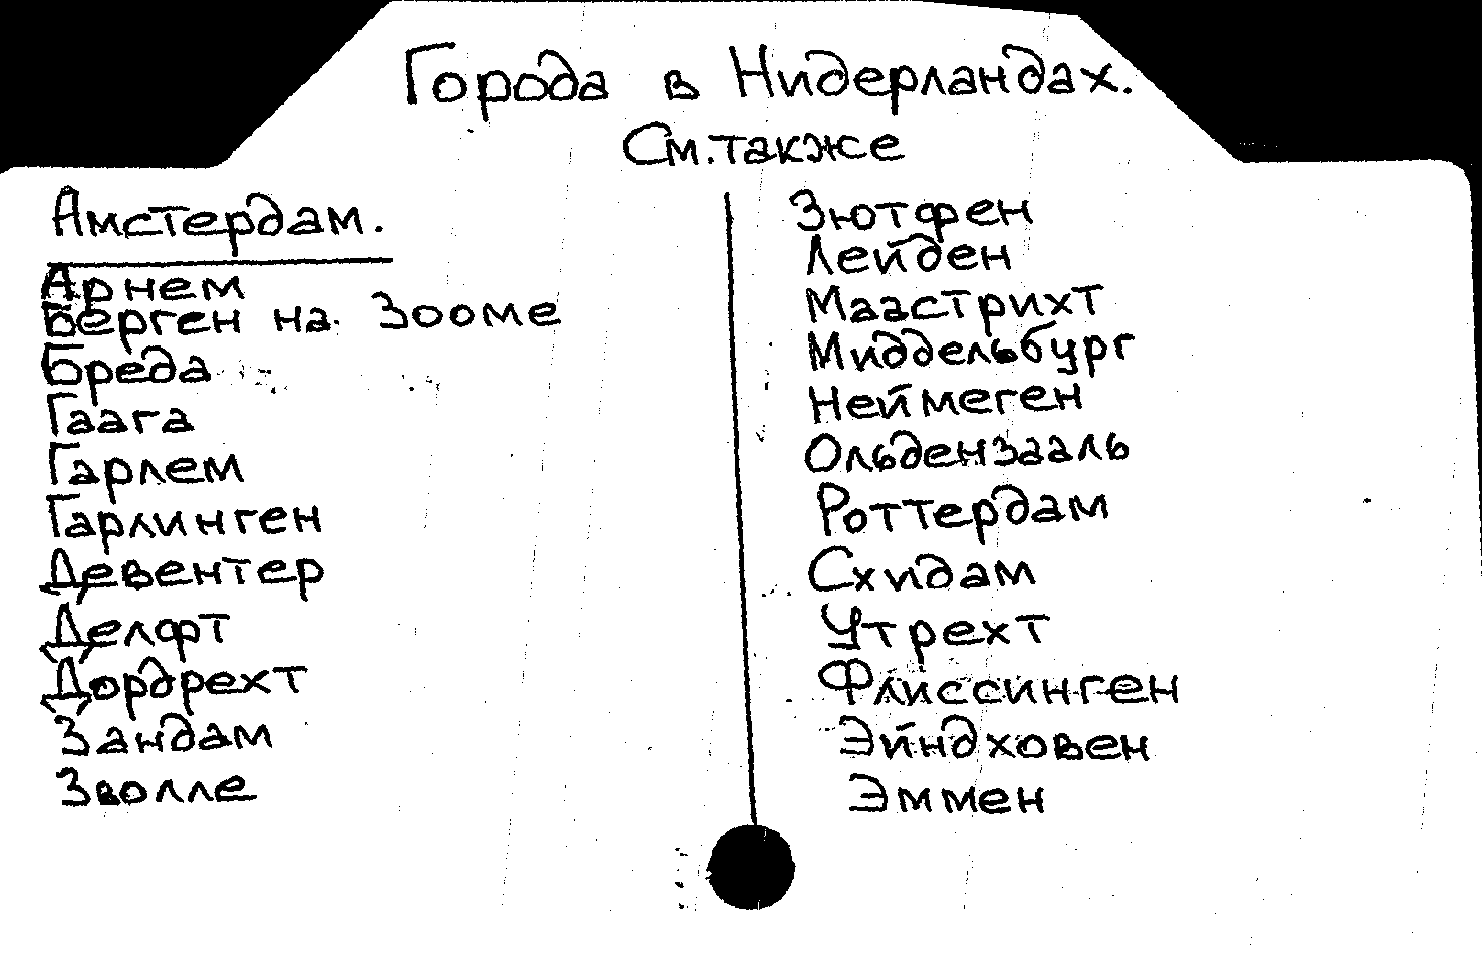 Города в Нидерландах.
См. также
Амстердам.
Арнем
Берген на Зооме
Бреда
Гаага
Гарлем
Гарлинген
Девентер
Делфт
Дордрехт
Зандам
Зволле
Зютфен
Лейден
Маастрихт
Миддельбург
Неймеген
Ольдензааль
Роттердам
Схидам
Утрехт
Флиссинген
Эйндховен
Эммен